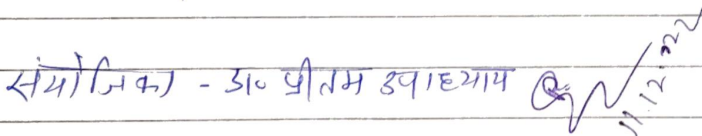 संयोजिका - डा० प्रीतम उपाध्याय
11.12.22